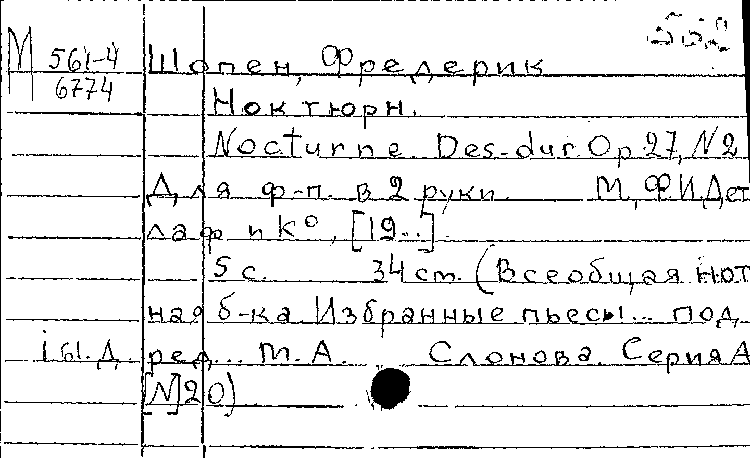 М 561-4 Шопен, Фредерик
6774
Ноктюрн.
Nocturne. Des-dur. Op 27, N2
Для ф-п. в 2 руки. М, Ф.И.Дет
лаф и К⁰, [19..].
5 с. 34 ст. (Всеобщая нот
ная б-ка. Избранные пьесы... под
і 61. Д. ред... М.А. Слонова. Серия А
[N]20)